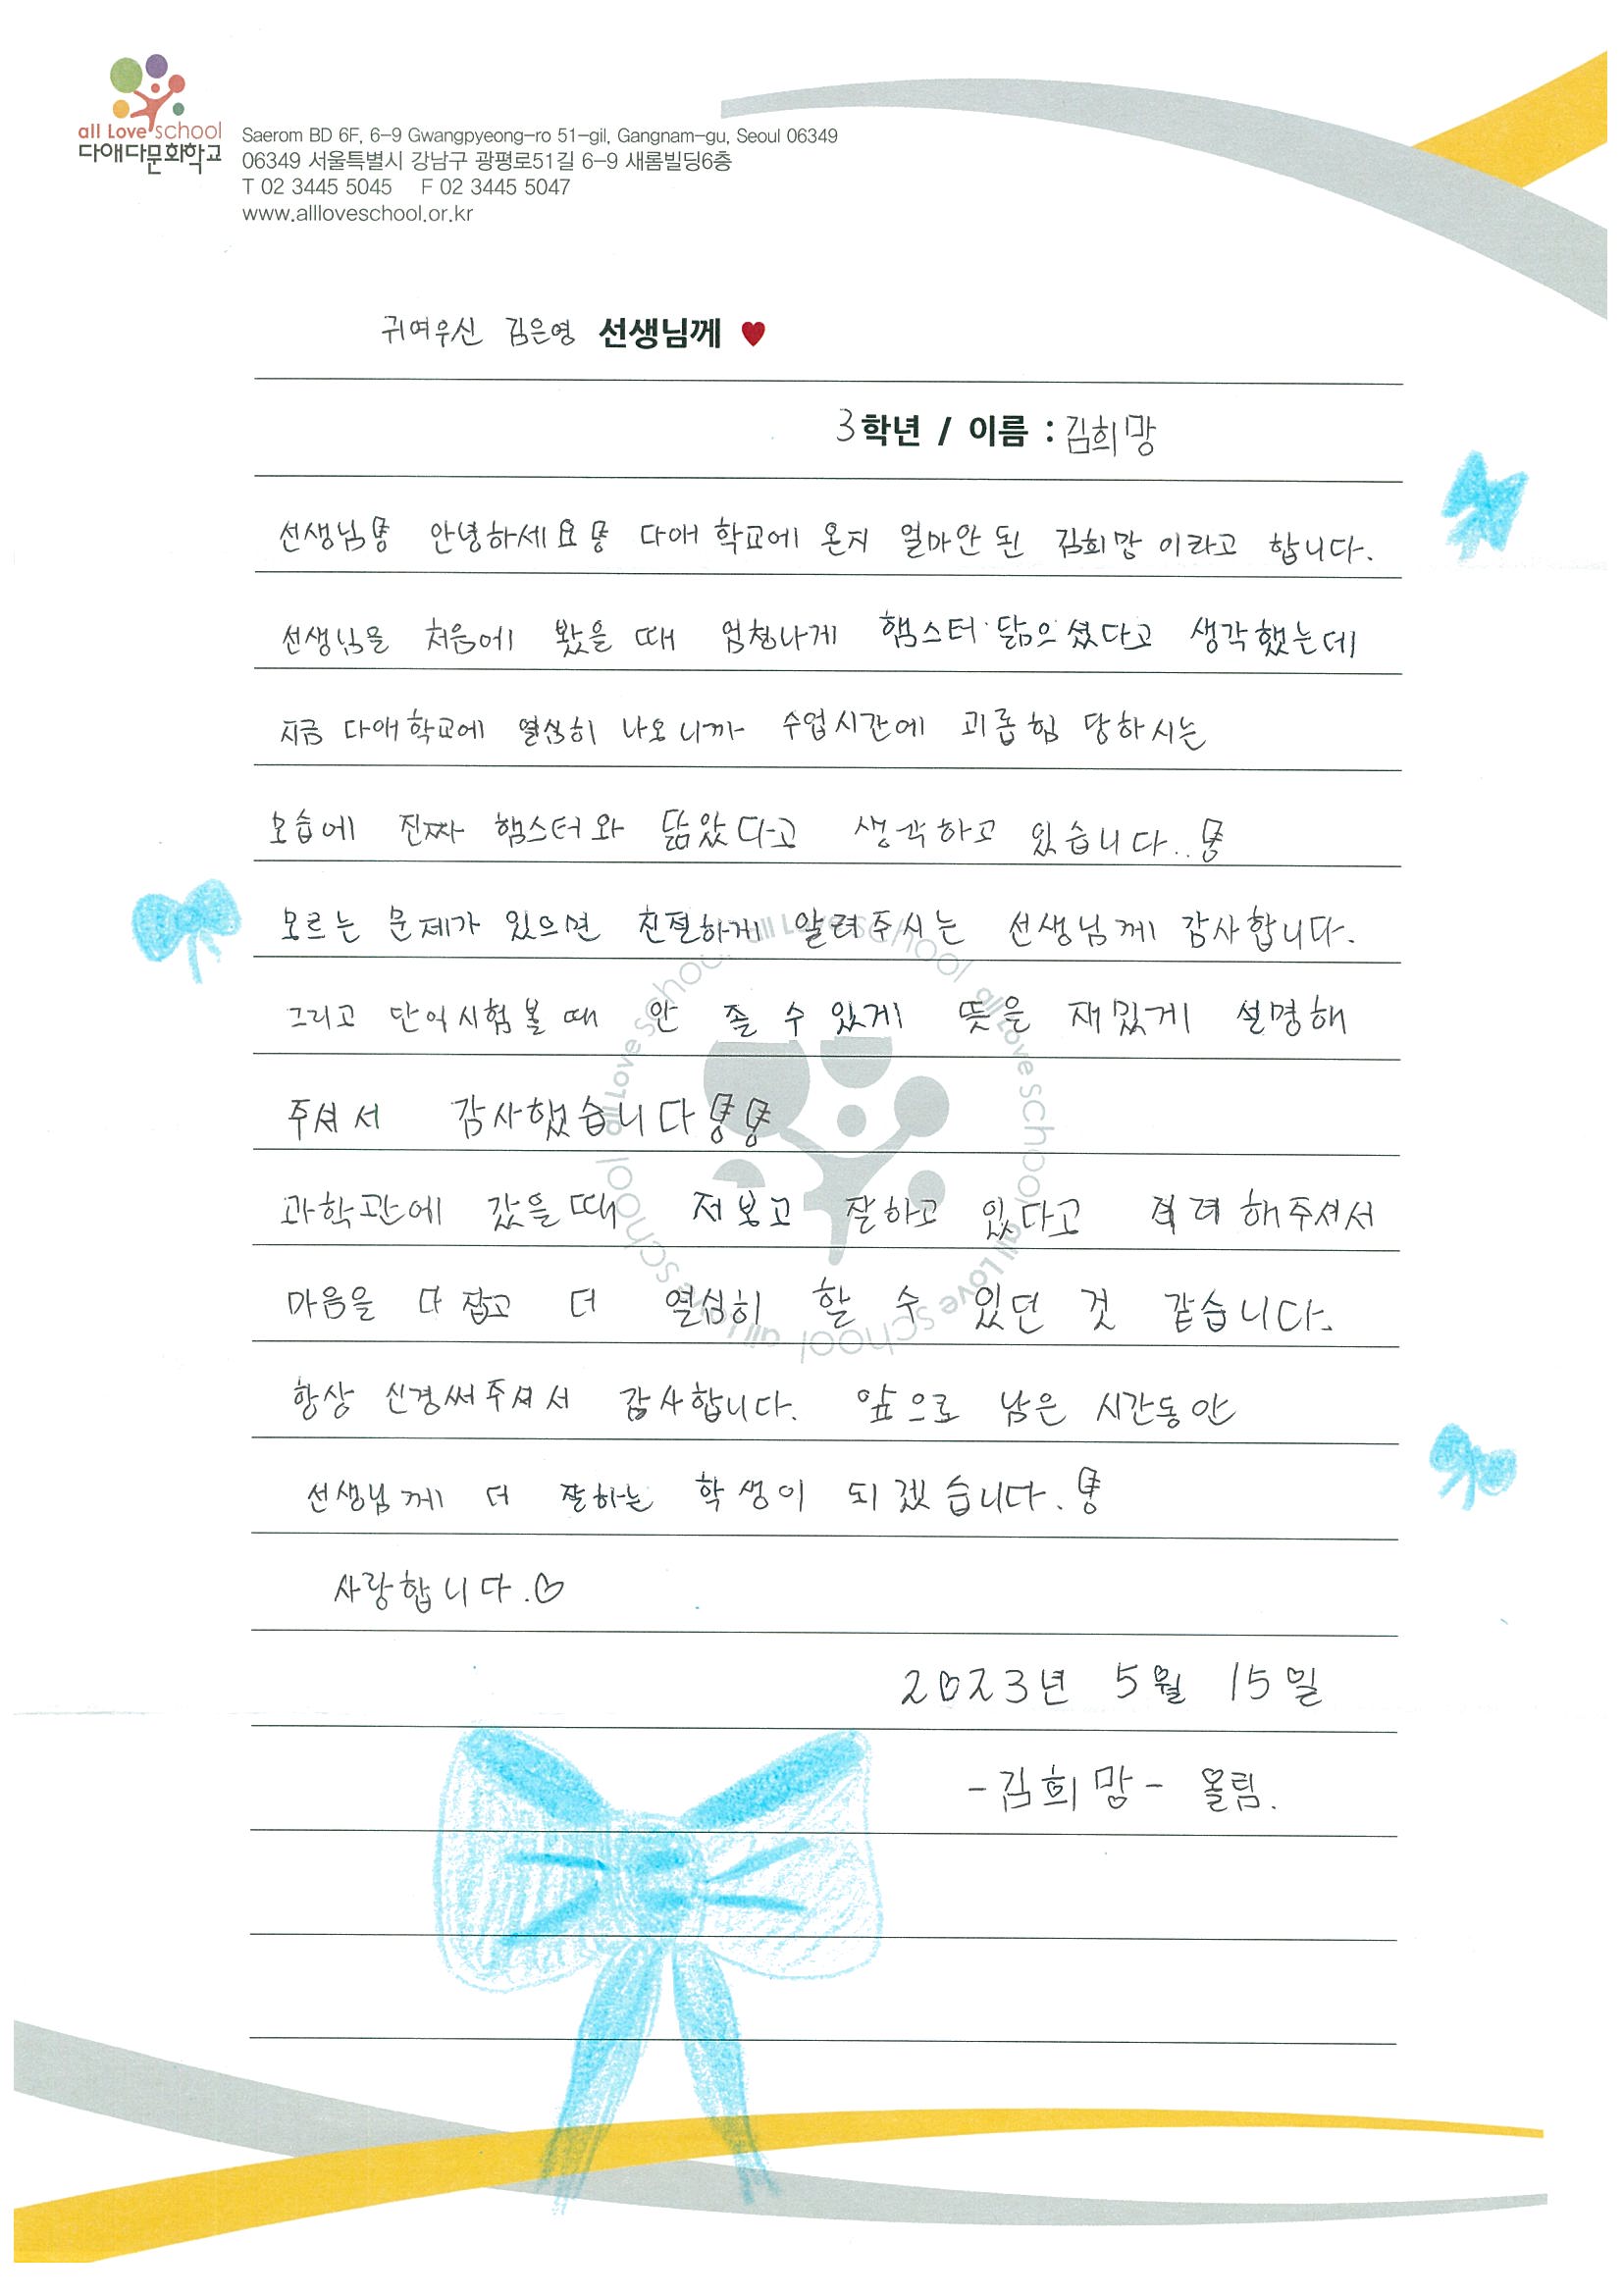 all Love school
다애다문화학교
Saerom BD 6F, 6-9 Gwangpyeong-ro 51-gil, Gangnam-gu, Seoul 06349
06349 서울특별시 강남구 광평로51길 6-9 새롬빌딩6층
T 02 3445 5045 F 02 3445 5047
www.allloveschool.or.kr
귀여우신 김은영 선생님께 ♥
3학년 / 이름 : 김희망
선생님 안녕하세요 다애 학교에 온지 얼마안 된 김희망 이라고 합니다.
선생님을 처음에 봤을 때 엄청나게 햄스터 닮으셨다고 생각했는데
지금 다애 학교에 열심히 나오니까 수업시간에 괴롭힘 당하시는
모습에 진짜 햄스터와 닮았다고 생각하고 있습니다..
모르는 문제가 있으면 친절하게 알려주시는 선생님께 감사합니다.
그리고 단어시험 볼 때 안 졸 수 있게 뜻을 재밌게 설명해
주셔서 감사했습니다
과학관에 갔을때 저보고 잘하고 있다고 격려해주셔서
마음을 다 잡고 더 열심히 할 수 있던 것 같습니다.
항상 신경써주셔서 감사합니다. 앞으로 남은 시간동안
선생님께 더 잘하는 학생이 되겠습니다.
사랑합니다.♡
2023년 5월 15일
-김희망- 올림.
all Love school all Love school all Love school all Love school all Love school